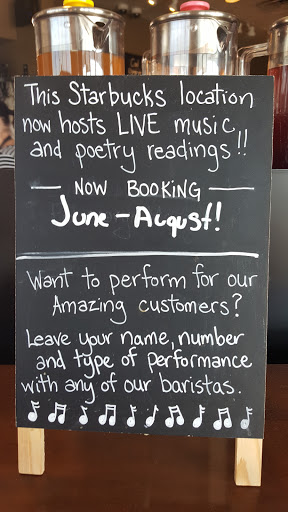 This Starbucks location
now hosts LIVE music
and poetry readings!!
— NOW BOOKING —
June - August!
Want to perform for our
Amazing customers?
Leave your name, number
and type of performance
with any of our baristas.